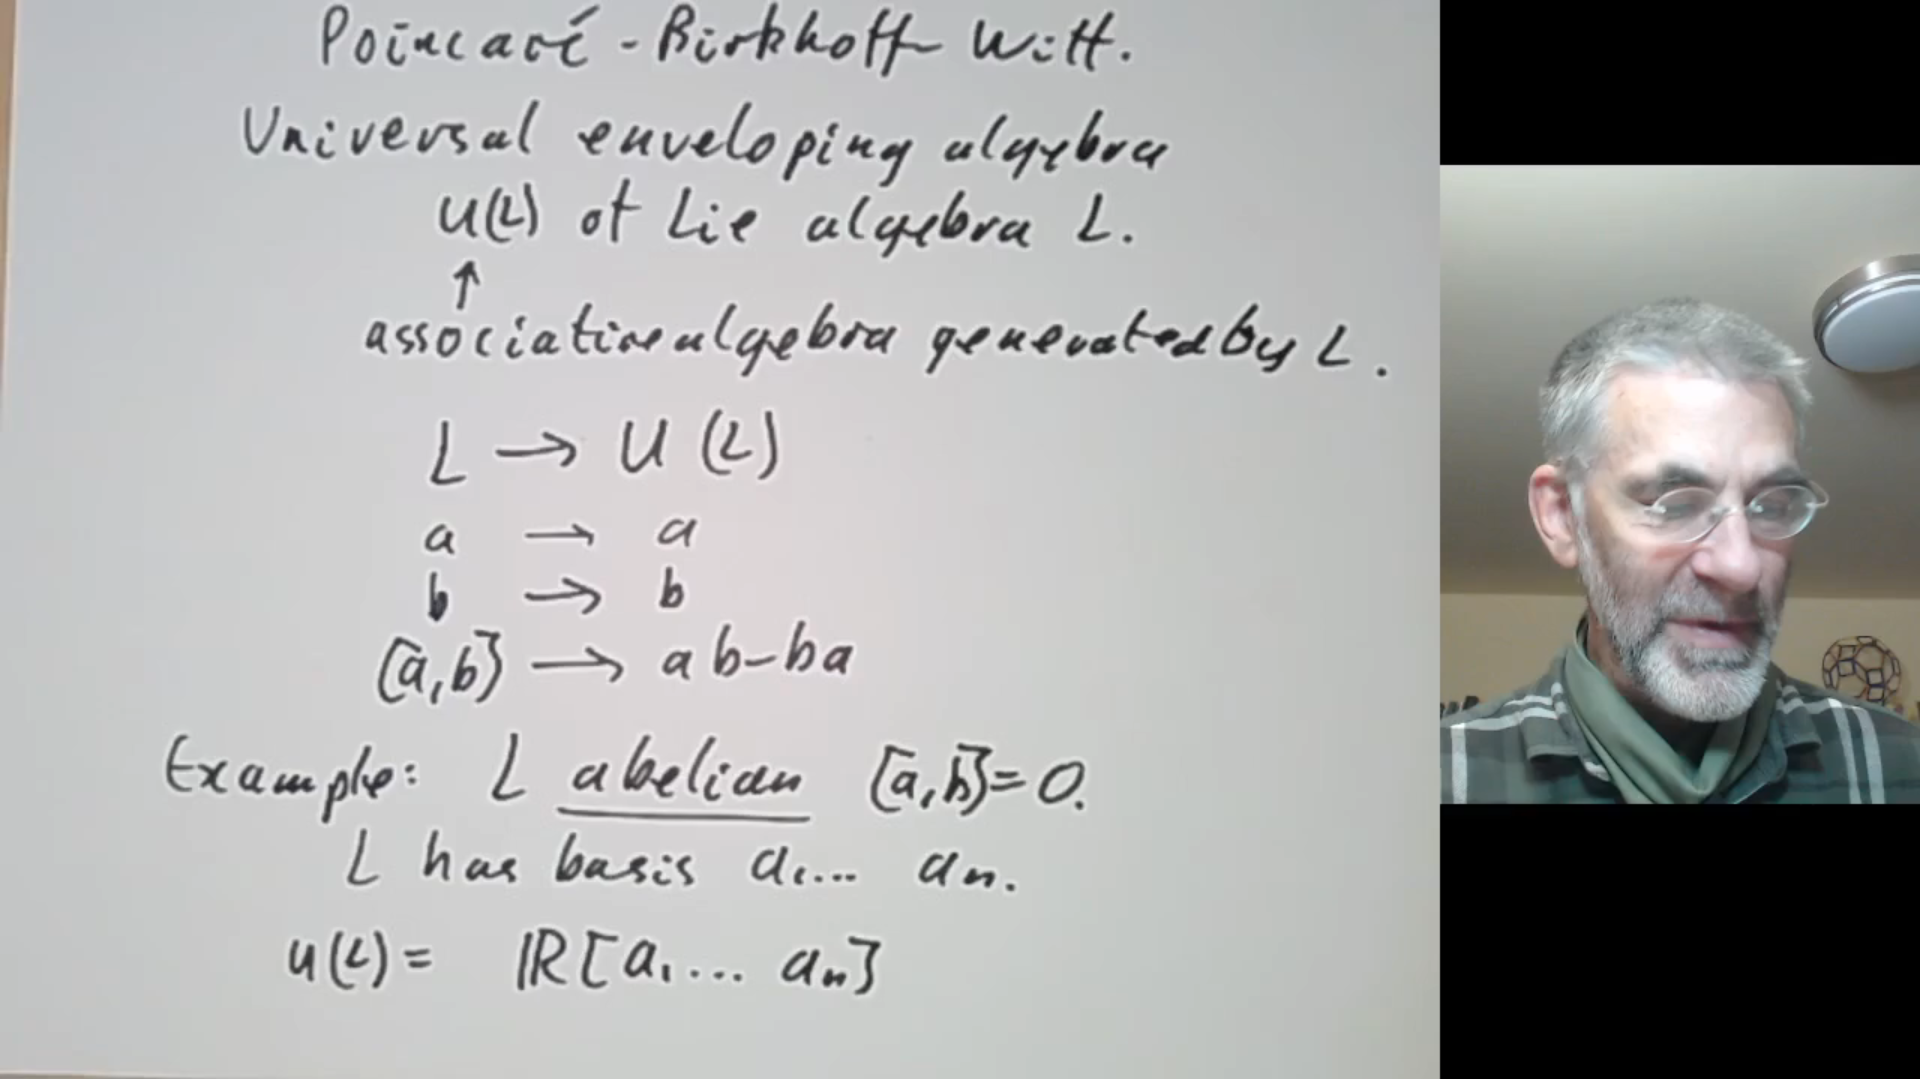 Poincaré - Birkhoff Witt.
Universal enveloping algebra
U(L) of Lie algebra L.
↑
associative algebra generated by L.
L → U(L)
a → a
b → b
[a,b] → ab-ba
Example: L abelian [a,b]=0.
L has basis a₁... aₙ.
U(L) = ℝ[a₁... aₙ]